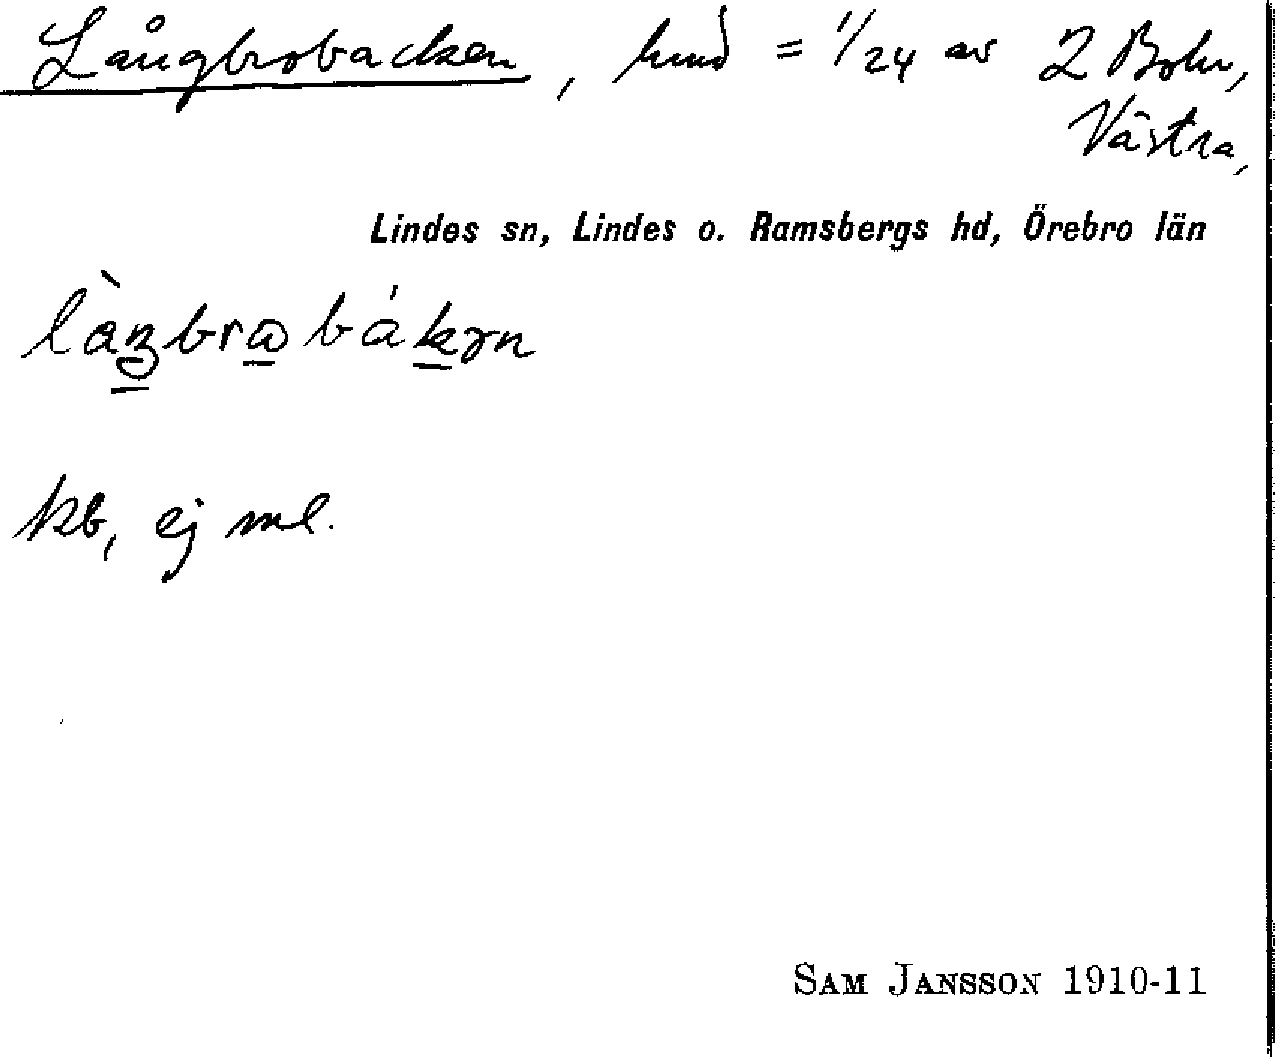 Långbrobacken, hmd = 1/24 av 2 Bohr,
Västra,
Lindes sn, Lindes o. Ramsbergs hd, Örebro län
kb, ej ml.
SAM JANSSON 1910-11